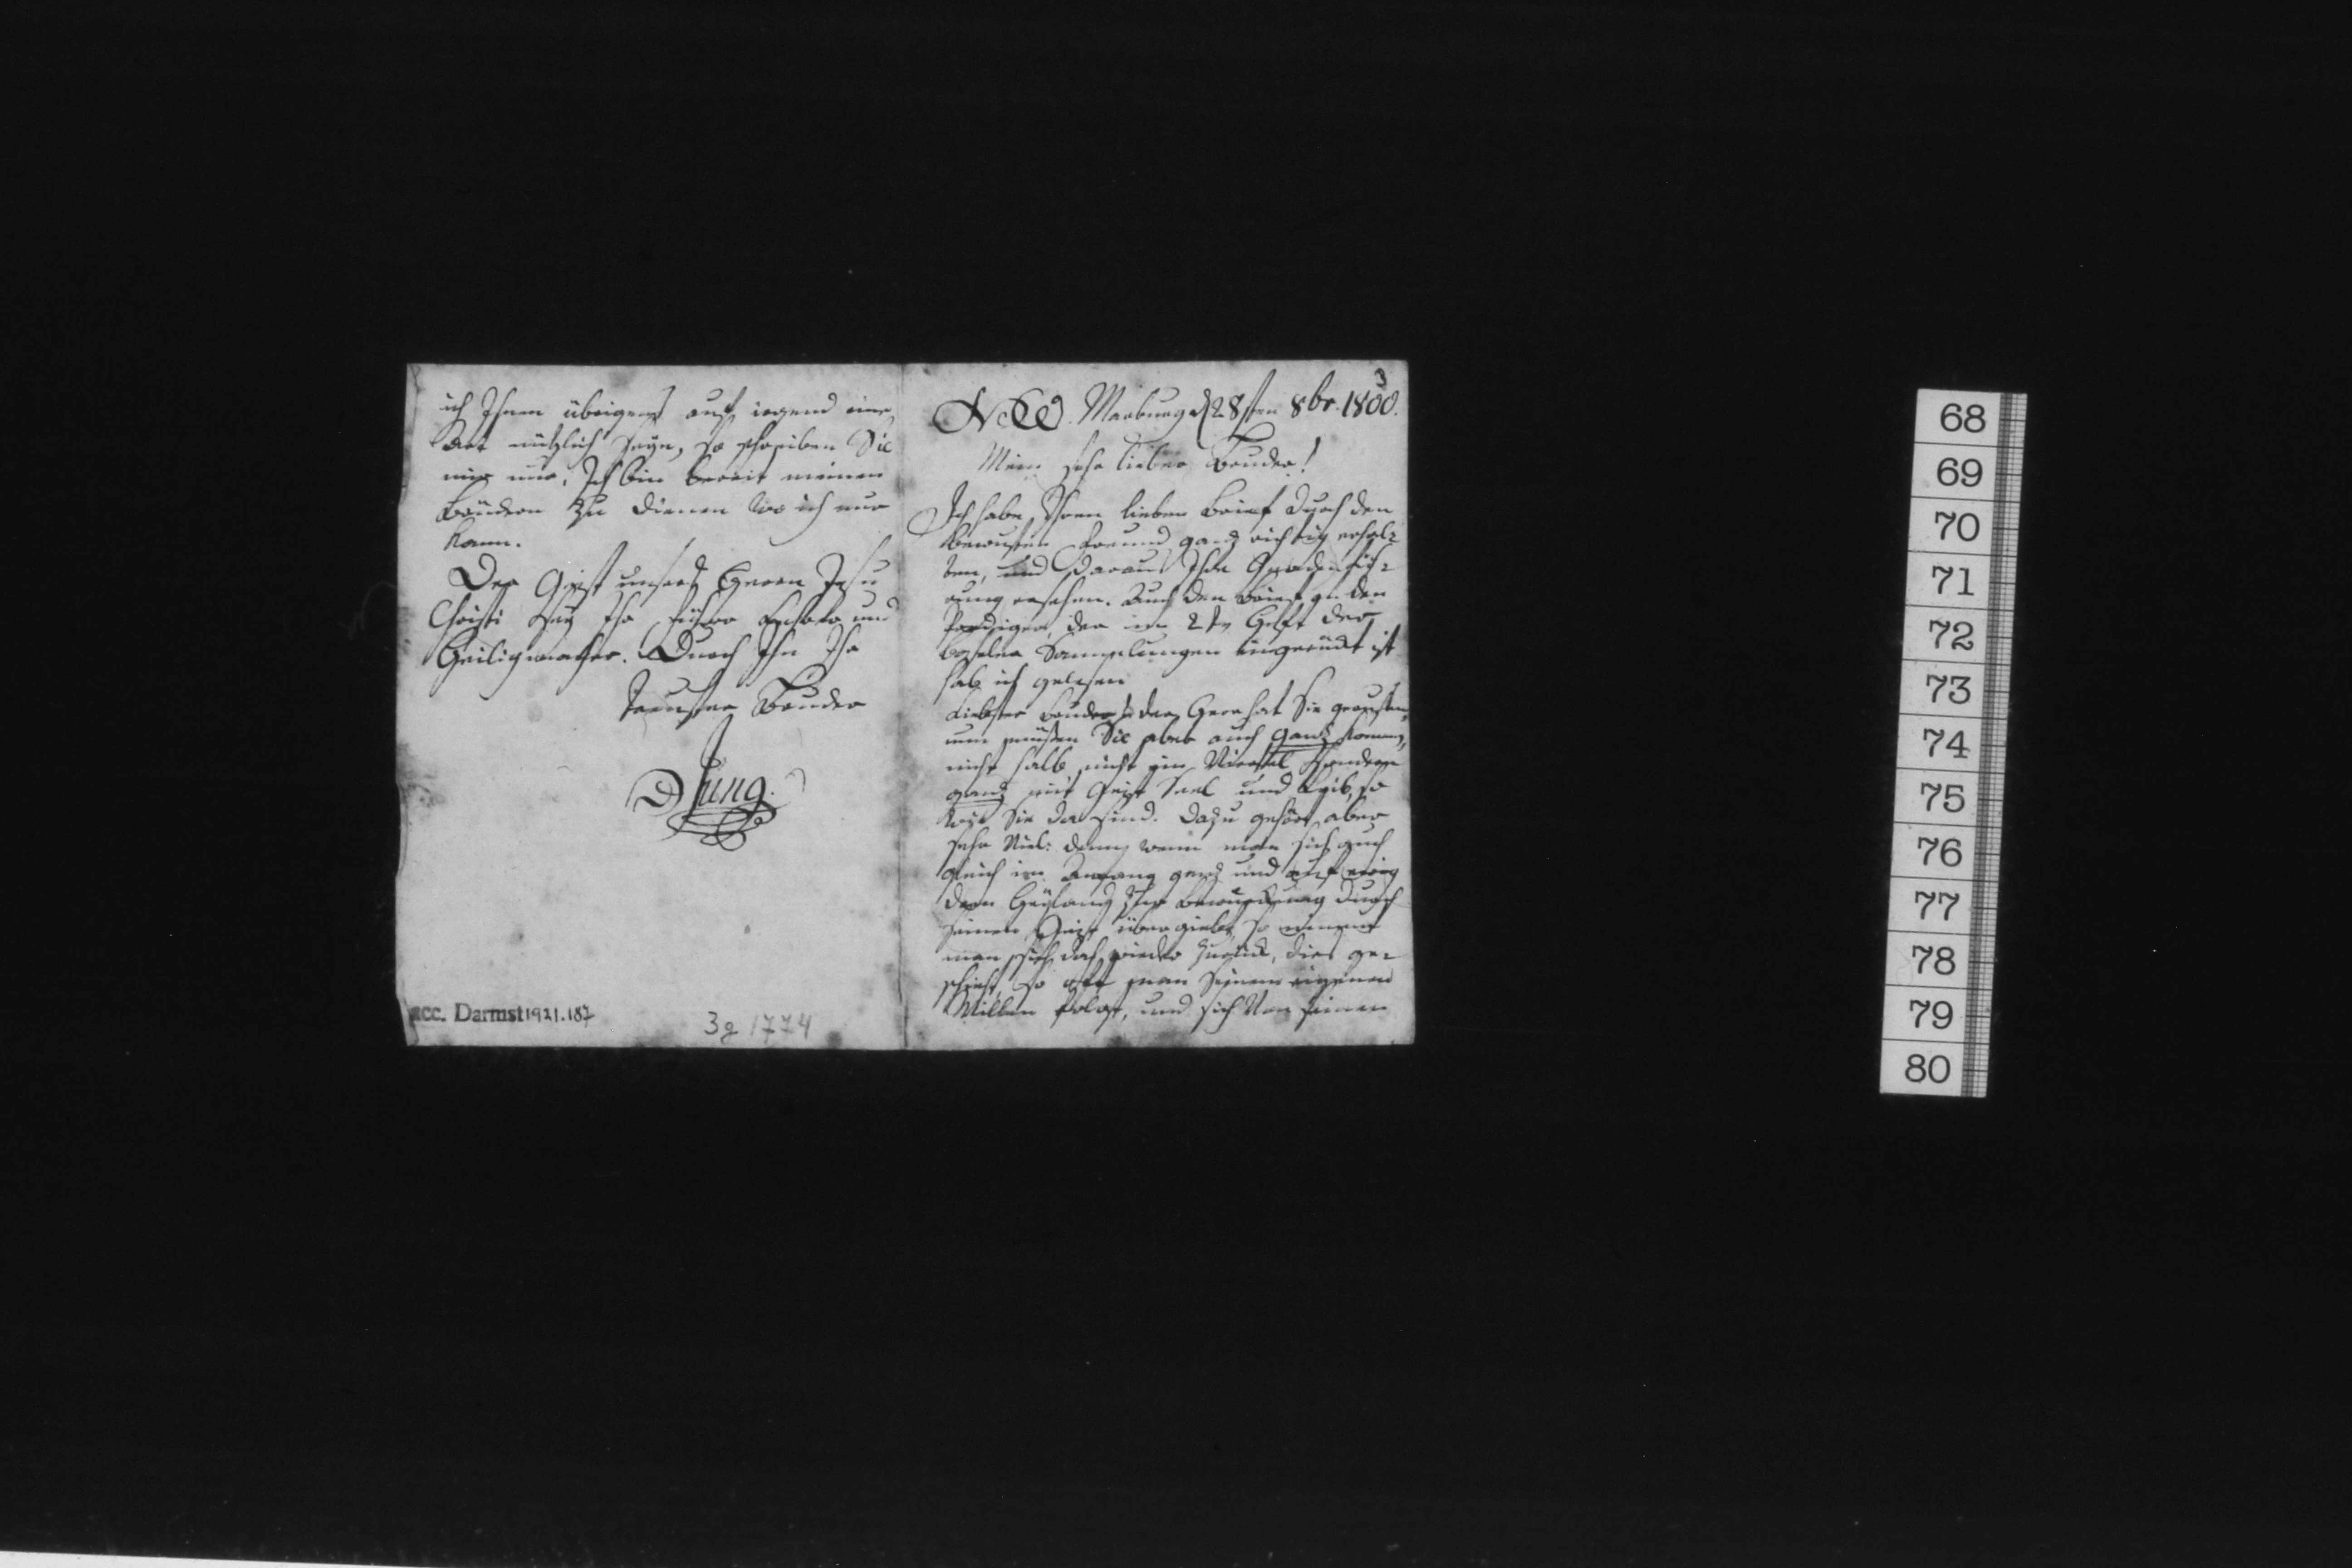 ich Ihnen übrigens auf irgend eine
Art nützlich seyn, so schreiben Sie
mir nur. Ich bin bereit meinen
Brüdern zu dienen wo ich nur
kann.
Der Geist unsers Herrn Jesu
Christi sey Ihr Führer Lehrer und
Heiligmacher. Durch Ihn Ihr
treuster Bruder
D Jung.
acc. Darmst 1921.187
3g 1774
3
Marburg d 28sten 8br. 1800.
Mein sehr lieber Bruder!
Ich habe Ihren lieben Brief durch den
bewusten Freund ganz richtig erhal-
ten, und daraus Ihre Gnadenfüh-
rung ersehen. Auch den Brief an den
Prediger, der im 2ten Heft der
Baseler Sammlungen eingerückt ist
hab ich gelesen
Liebster Bruder der Herr hat Sie gerufen,
nun müssen Sie aber auch ganz kommen,
nicht halb, nicht ein Viertel sondern
ganz mit Geist Seel und Leib, so
wie Sie da sind. Dazu gehört aber
sehr Viel: denn wenn man sich auch
gleich im Anfang ganz und auf ewig
dem Heyland zur Bewürkung durch
seinen Geist übergiebt, so nimmt
man sich doch wieder zurück, dies ge-
schieht so oft man Seinem eigenen
Willen folgt, und sich Von seinen